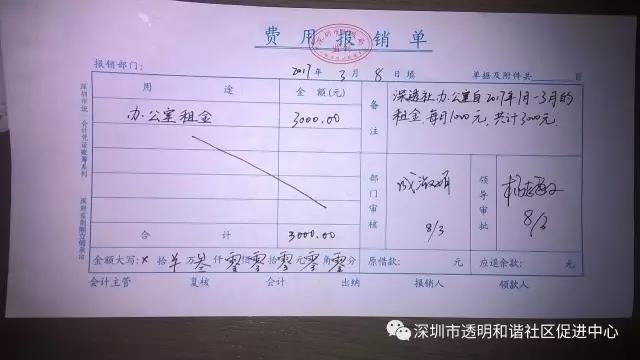 费用报销单
报销部门： 2017年3月8日填 单据及附件共 页
用途 金额(元) 备注
办公室租金 3000.00
深透社办公室自2017年1月-3月的
租金,每月1000元,共计3000元.
部门审核 8/3 领导审批 8/3
合计 3000.00
金额大写:× 拾 万叁仟零佰零拾零元零角零分 原借款: 元 应退余款: 元
会计主管 复核 会计 出纳 报销人 领款人
深圳市透明和谐社区促进中心